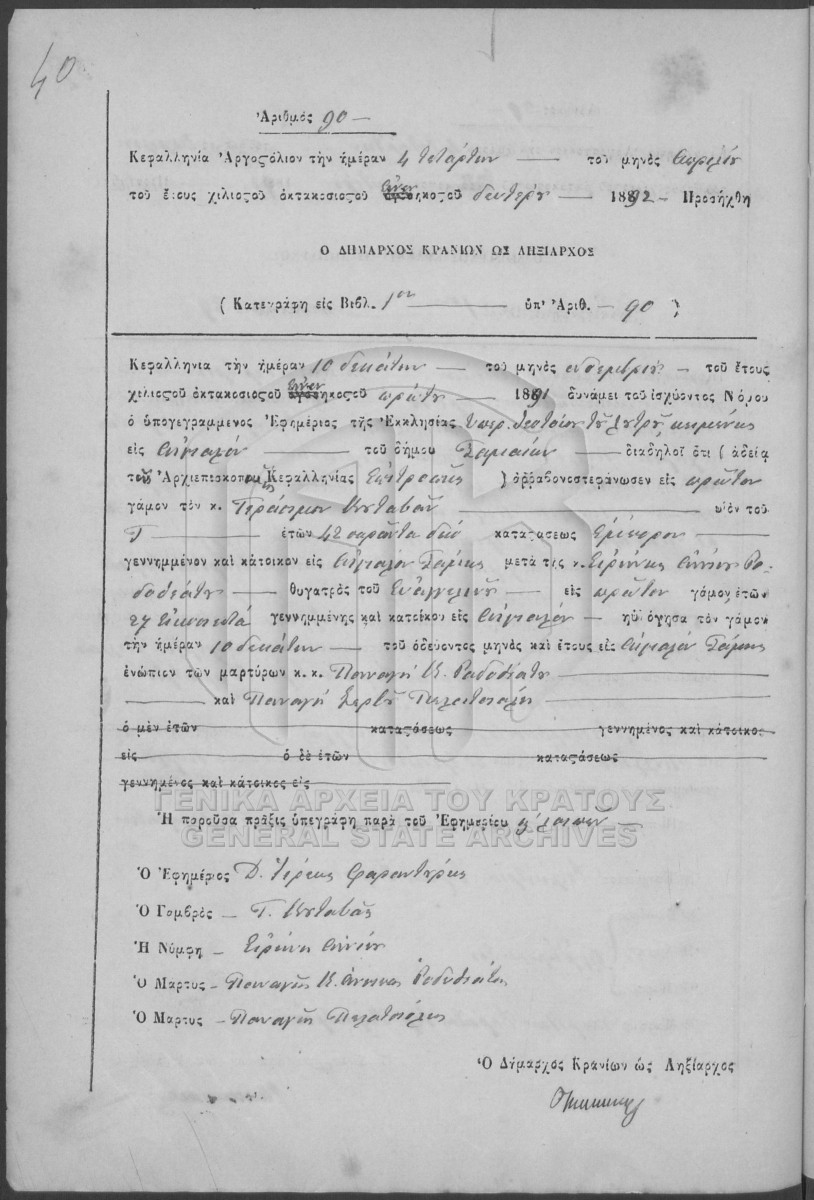 40
Ἀριθμός 90 —
Κεφαλληνία Ἀργοςόλιον τὴν ἡμέραν 4 τετάρτην — τοῦ μηνὸς Απριλίου
τοῦ ἔτους χιλιοςοῦ ὀκτακοσιοςοῦ ηκοςοῦ δευτέρου — 1892 — Προσήχθη
Ο ΔΗΜΑΡΧΟΣ ΚΡΑΝΙΩΝ ΩΣ ΛΗΞΙΑΡΧΟΣ
( Κατεγράφη εἰς Βιβλ. 1ον — ὑπ' Ἀριθ. — 90 )
Κεφαλληνια τὴν ἡμέραν 10 δεκάτην — τοῦ μηνὸς — τοῦ ἔτους
χιλιοςοῦ ὀκτακοσιοςοῦ ηκοςοῦ πρώτου — 1891 δυνάμει τοῦ ἰσχύοντος Νόμου
ὁ ὑπογεγραμμενος Ἐφημέριος τῆς Ἐκκλησίας Υπερ. Θεοτόκου κειμένης
εἰς Αιγιαλόν — τοῦ δήμου Σαμαίων — διαδηλοῖ ὅτι ( ἀδείᾳ
Ἀρχιεπισκοπ Κεφαλληνίας ) ἀρραβονοστεφάνωσεν εἰς πρῶτον
γάμον τὸν κ. Γεράσιμον Κουταβᾶν — υἱὸν τοῦ
Γ — ἐτῶν 42 σαράντα δυό καταςασεως Εμπορον —
γεννημμένον καὶ κάτοικον εἰς Αιγιαλόν Σάμης μετὰ τῆς κ. Ειρήνης Αννίνου Ρο-
δοθεάτου — θυγατρὸς τοῦ Ευαγγελινοῦ — εἰς πρῶτον γάμον ἐτῶν
27 Εικοσιεπτά γεννημμένης καὶ κατοίκου εἰς Αιγιαλόν — ηὐλόγησα τὸν γάμον
τὴν ἡμέραν 10 δεκάτην — τοῦ ὁδεύοντος μηνὸς καὶ ἔτους εἰς Αιγιαλόν Σάμης
ἐνώπιον τῶν μαρτύρων κ. κ. Παναγή Κ. Ροδοθεάτου —
— καὶ Παναγή —
ὁ μὲν ἐτῶν καταςάσεως γεννημένος καὶ κάτοικος
εἰς ὁ δὲ ἐτῶν καταςάσεως
γεννημένος καὶ κάτοικος εἰς
ΓΕΝΙΚΑ ΑΡΧΕΙΑ ΤΟΥ ΚΡΑΤΟΥΣ
Ἡ παροῦσα πρᾶξις ὑπεγράφη παρὰ τοῦ Ἐφημερίου λοιπῶν —
GENERAL STATE ARCHIVES
Ὁ Ἐφημέριος Δ. Ιερεύς
Ὁ Γαμβρὸς — Γ. Κουταβᾶς
Ἡ Νύμφη — Ειρήνη Αννίνου
Ὁ Μαρτυς — Παναγῆς Κ. Ροδοθεάτος
Ὁ Μαρτυς — Παναγῆς
Ὁ Δήμαρχος Κρανίων ὡς Ληξίαρχος